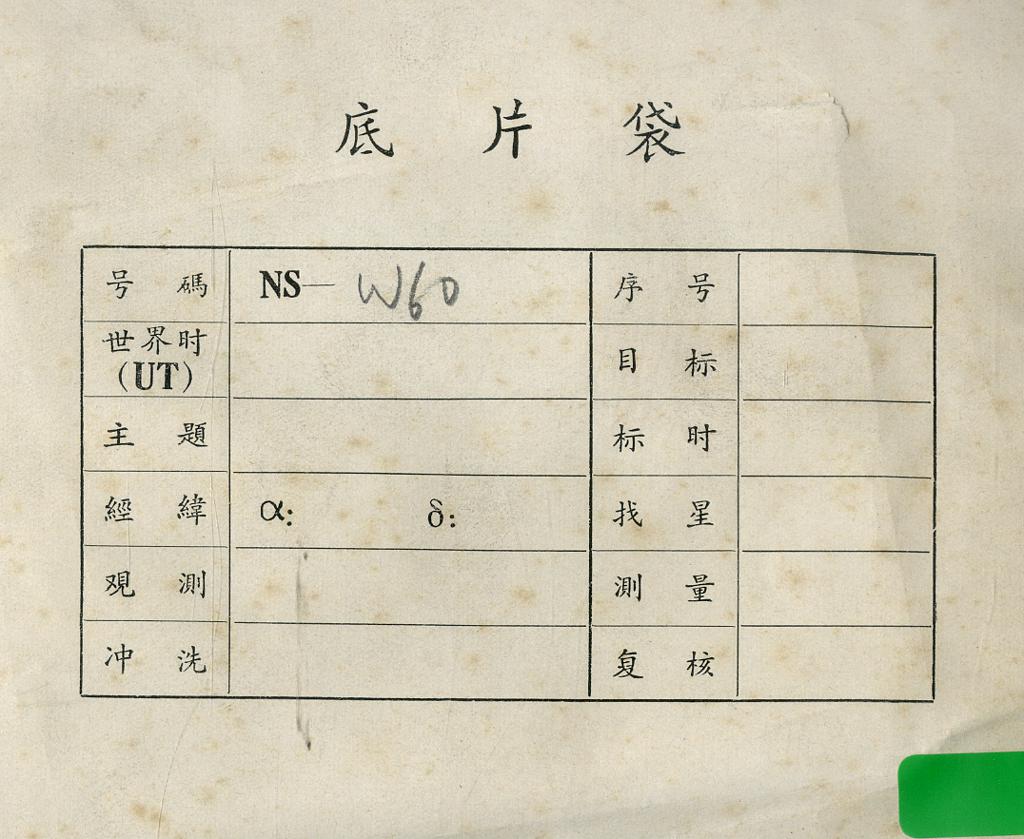 底片袋
号碼 NS— W60 序号
世界时(UT) 目标
主題 标时
經緯 α: δ: 找星
观測 測量
冲洗 复核